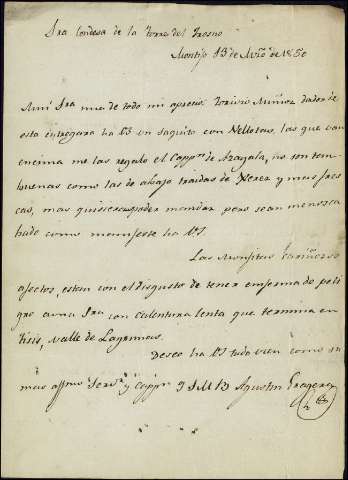 Sra Condesa de la Torre del Fresno
Montijo 13 de de 1850
Muy Sra mia de todo mi aprecio: Torivio Muñoz dador de
esta entregara ha Vd un saquito con Vellotas, las que van
encima me las regalo el Cappn de Azagala, no son tan
buenas como las de abajo traidas de Xerez y mas fres
cas, mas quisiera poder mandar pero se an menosca
bado como manifeste ha Vd
Las Monjitas cariñosos
afectos, estan con el disgusto de tener enferma de peli
gro a una Sra con calentura lenta que termina en
tisis, valle de Lagrimas.
Deseo ha Vd todo vien como su
mas affmo Servr y Cappn Q S M B Agustin Gragera